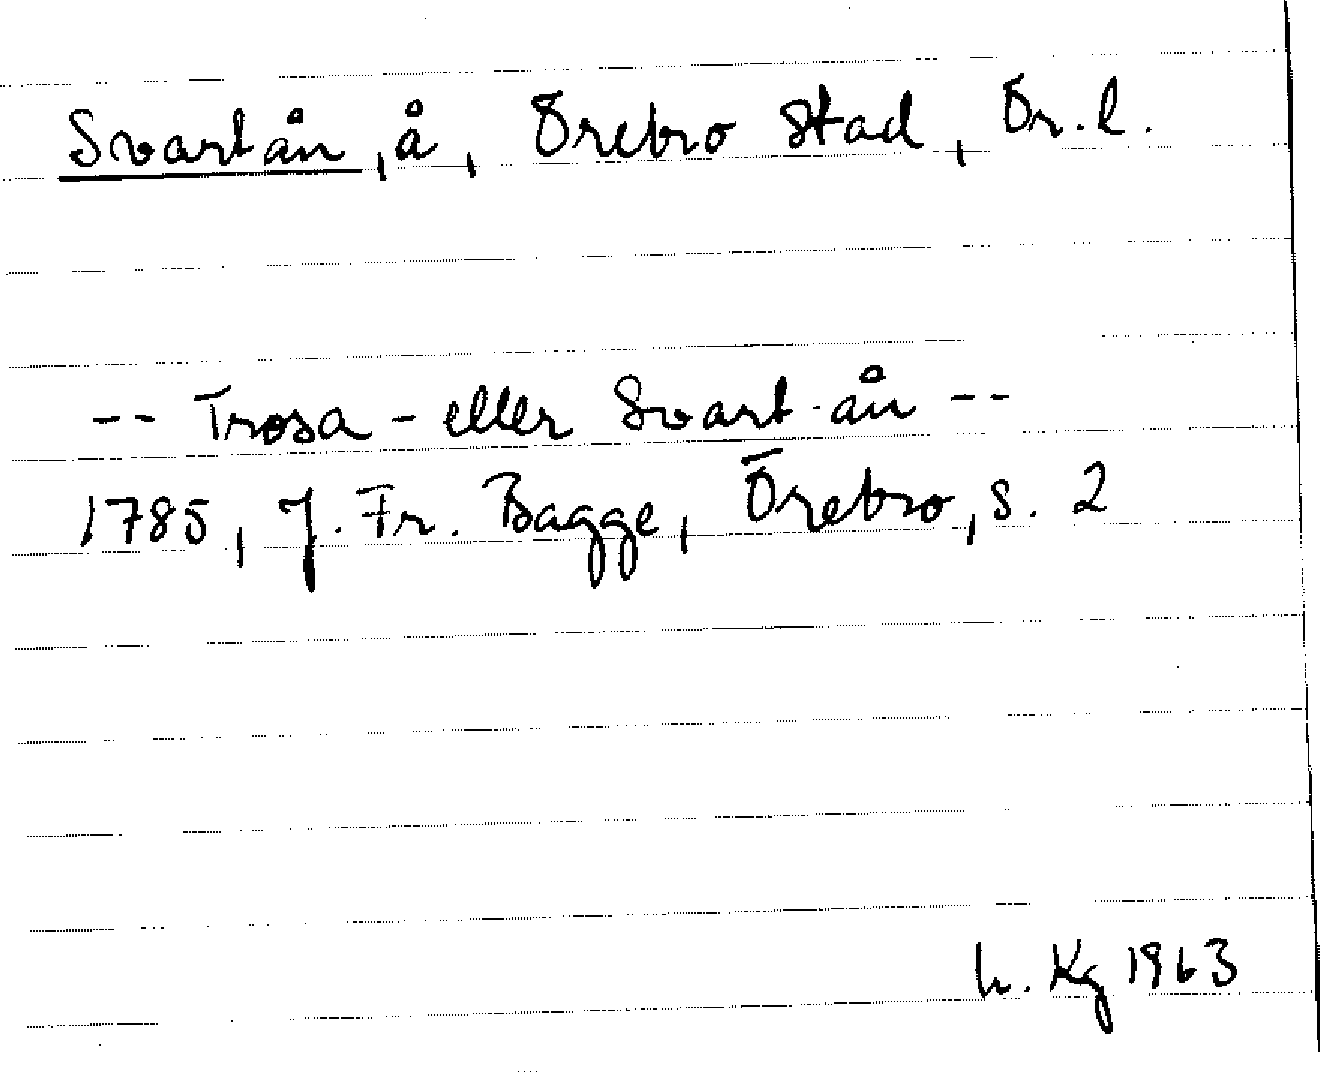 Svartån, å, Örebro stad, Ör. l.
-- Trosa - eller Svart-ån --
1785, J. Fr. Bagge, Örebro, s. 2
h. Kg 1963